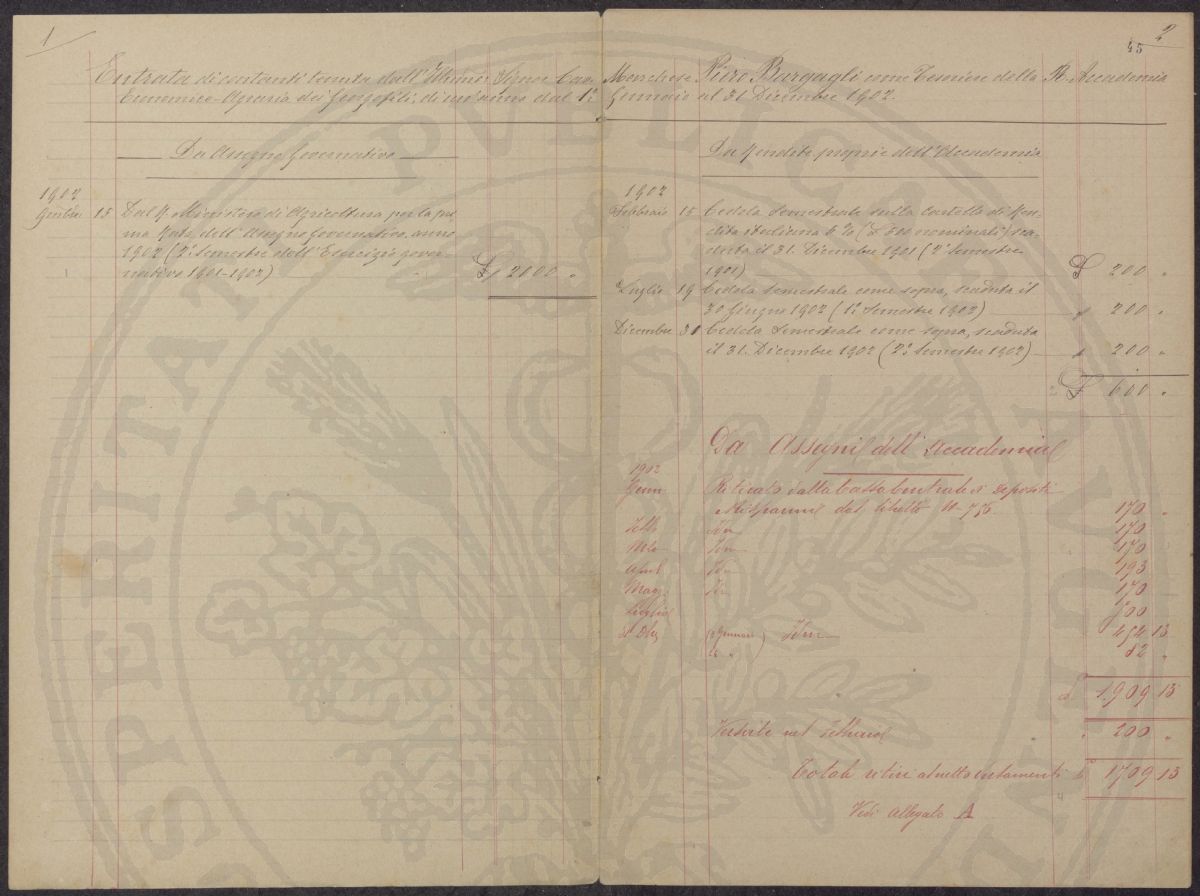 1
45
2
Entrata di contanti tenuta dall'Illmo Signor Cav. Marchese Piero Bargagli come Tesoriere della R. Accademia
Economico-Agraria dei Georgofili, di un anno dal 1º Gennaio al 31 Dicembre 1902.
Da Assegno Governativo
1902
15 Dal R. Ministero di Agricoltura per la pri
ma Rata dell'Assegno Governativo anno
1902 (2º semestre dell'Esercizio gover-
nativo 1901-1902) £ 2000 "
Da Rendite proprie dell'Accademia
1902
Febbraio 15 Cedola Semestrale sulla Cartella di Ren-
dita italiana 5% nominali) sca-
duta il 31. Dicembre 1901 (2º Semestre
1901) £ 200 "
Luglio 19 Cedola semestrale come sopra, scaduta il
30 Giugno 1902 (1º Semestre 1902) " 200 "
Dicembre 31 Cedola Semestrale come sopra, scaduta
il 31. Dicembre 1902 (2º Semestre 1902) " 200 "
£ 600 "
Da Assegni dell'Accademia
1902
Genn Ritirato dalla Cassa Centrale di Depositi
e Risparmi dal libretto 170 "
Febb Idm 170
Mzo Idm 170
April Idm 193
Magg. Idm 170
Luglio 500
31 Dbre Idm 454 13
82 "
£ 1,909 13
Versate nel Febbraio " 200 "
Totale ritiri al netto versamenti £ 1709 13
Vedi Allegato A
PERITATI PUBLICAE AUGENDAE PROSPERITATI